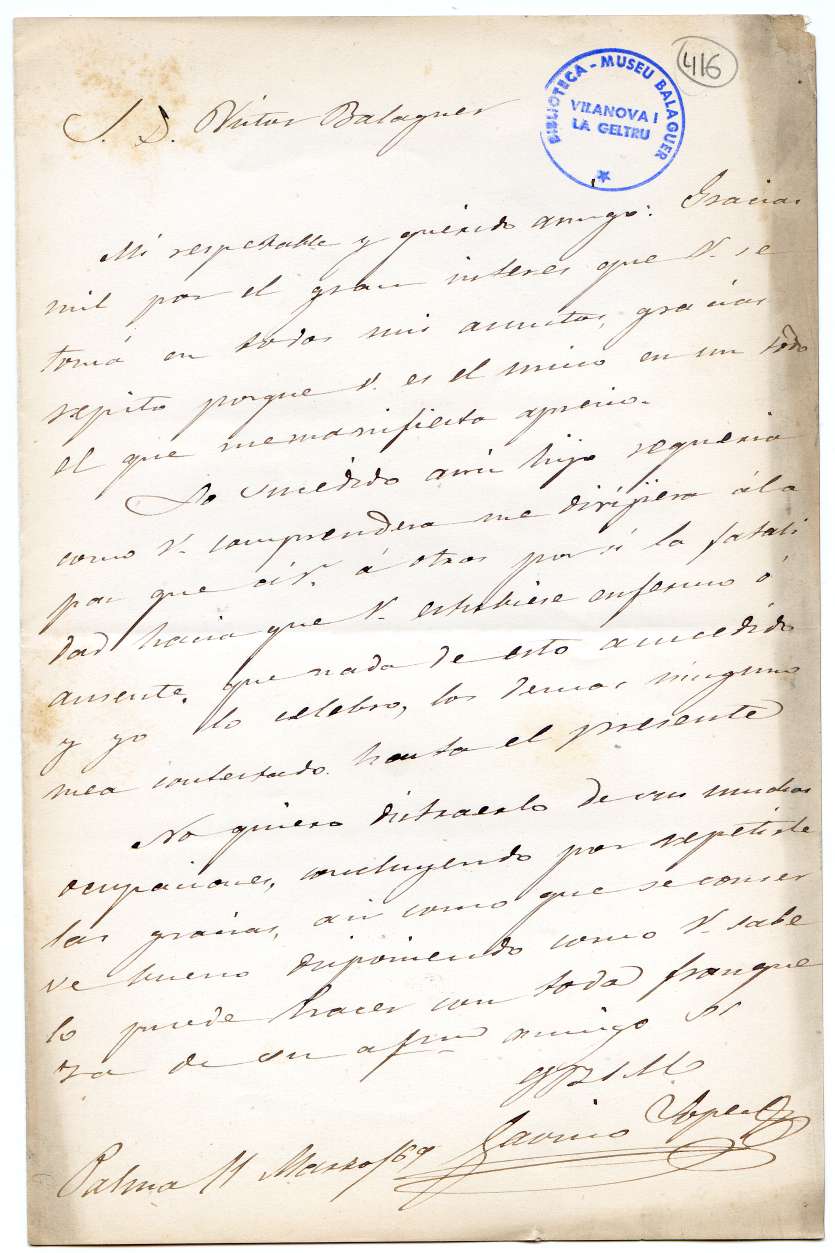 416
BIBLIOTECA - MUSEU BALAGUER
VILANOVA I
LA GELTRU
S. D. Victor Balaguer
Mi respetable y querido amigo: Gracias
mil por el gran interes que V. se
tomá en todos mis asuntos, gracias
repito porque V. es el unico en un todo
el que memanifiesta aprecio.
Lo sucedido ami hijo requeria
como V. comprendera me dirijiera ála
par que áV. á otros por si la fatali
dad hacia que V. estubiese enfermo ó
ausente, que nada de esto asucedido
y yo lo celebro, los demas ninguno
mea contestado hasta el presente
No quiero distraerlo de sus muchas
ocupaciones, concluyendo por repetirle
las gracias, asi como que se conser
ve bueno disponiendo como V. sabe
lo puede hacer con toda franque
za de su afmo amigo SS
QBSM
Palma 11 Marzo/69 Lopez